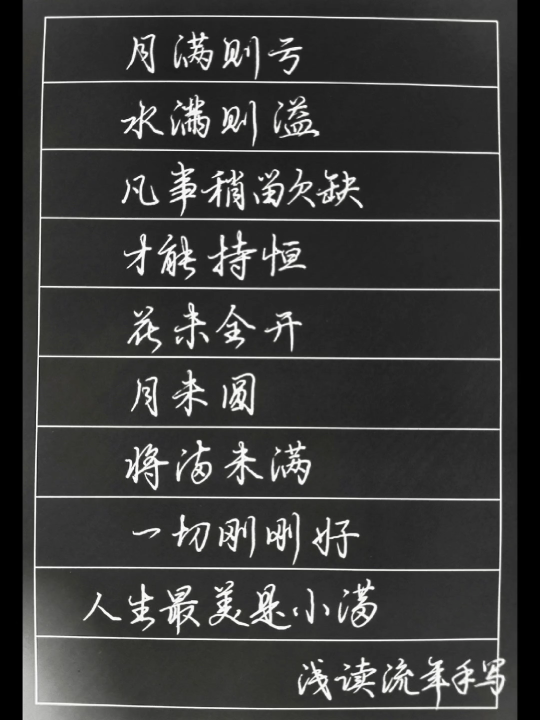 月满则亏
水满则溢
凡事稍留欠缺
才能持恒
花未全开
月未圆
将满未满
一切刚刚好
人生最美是小满
浅读流年手写